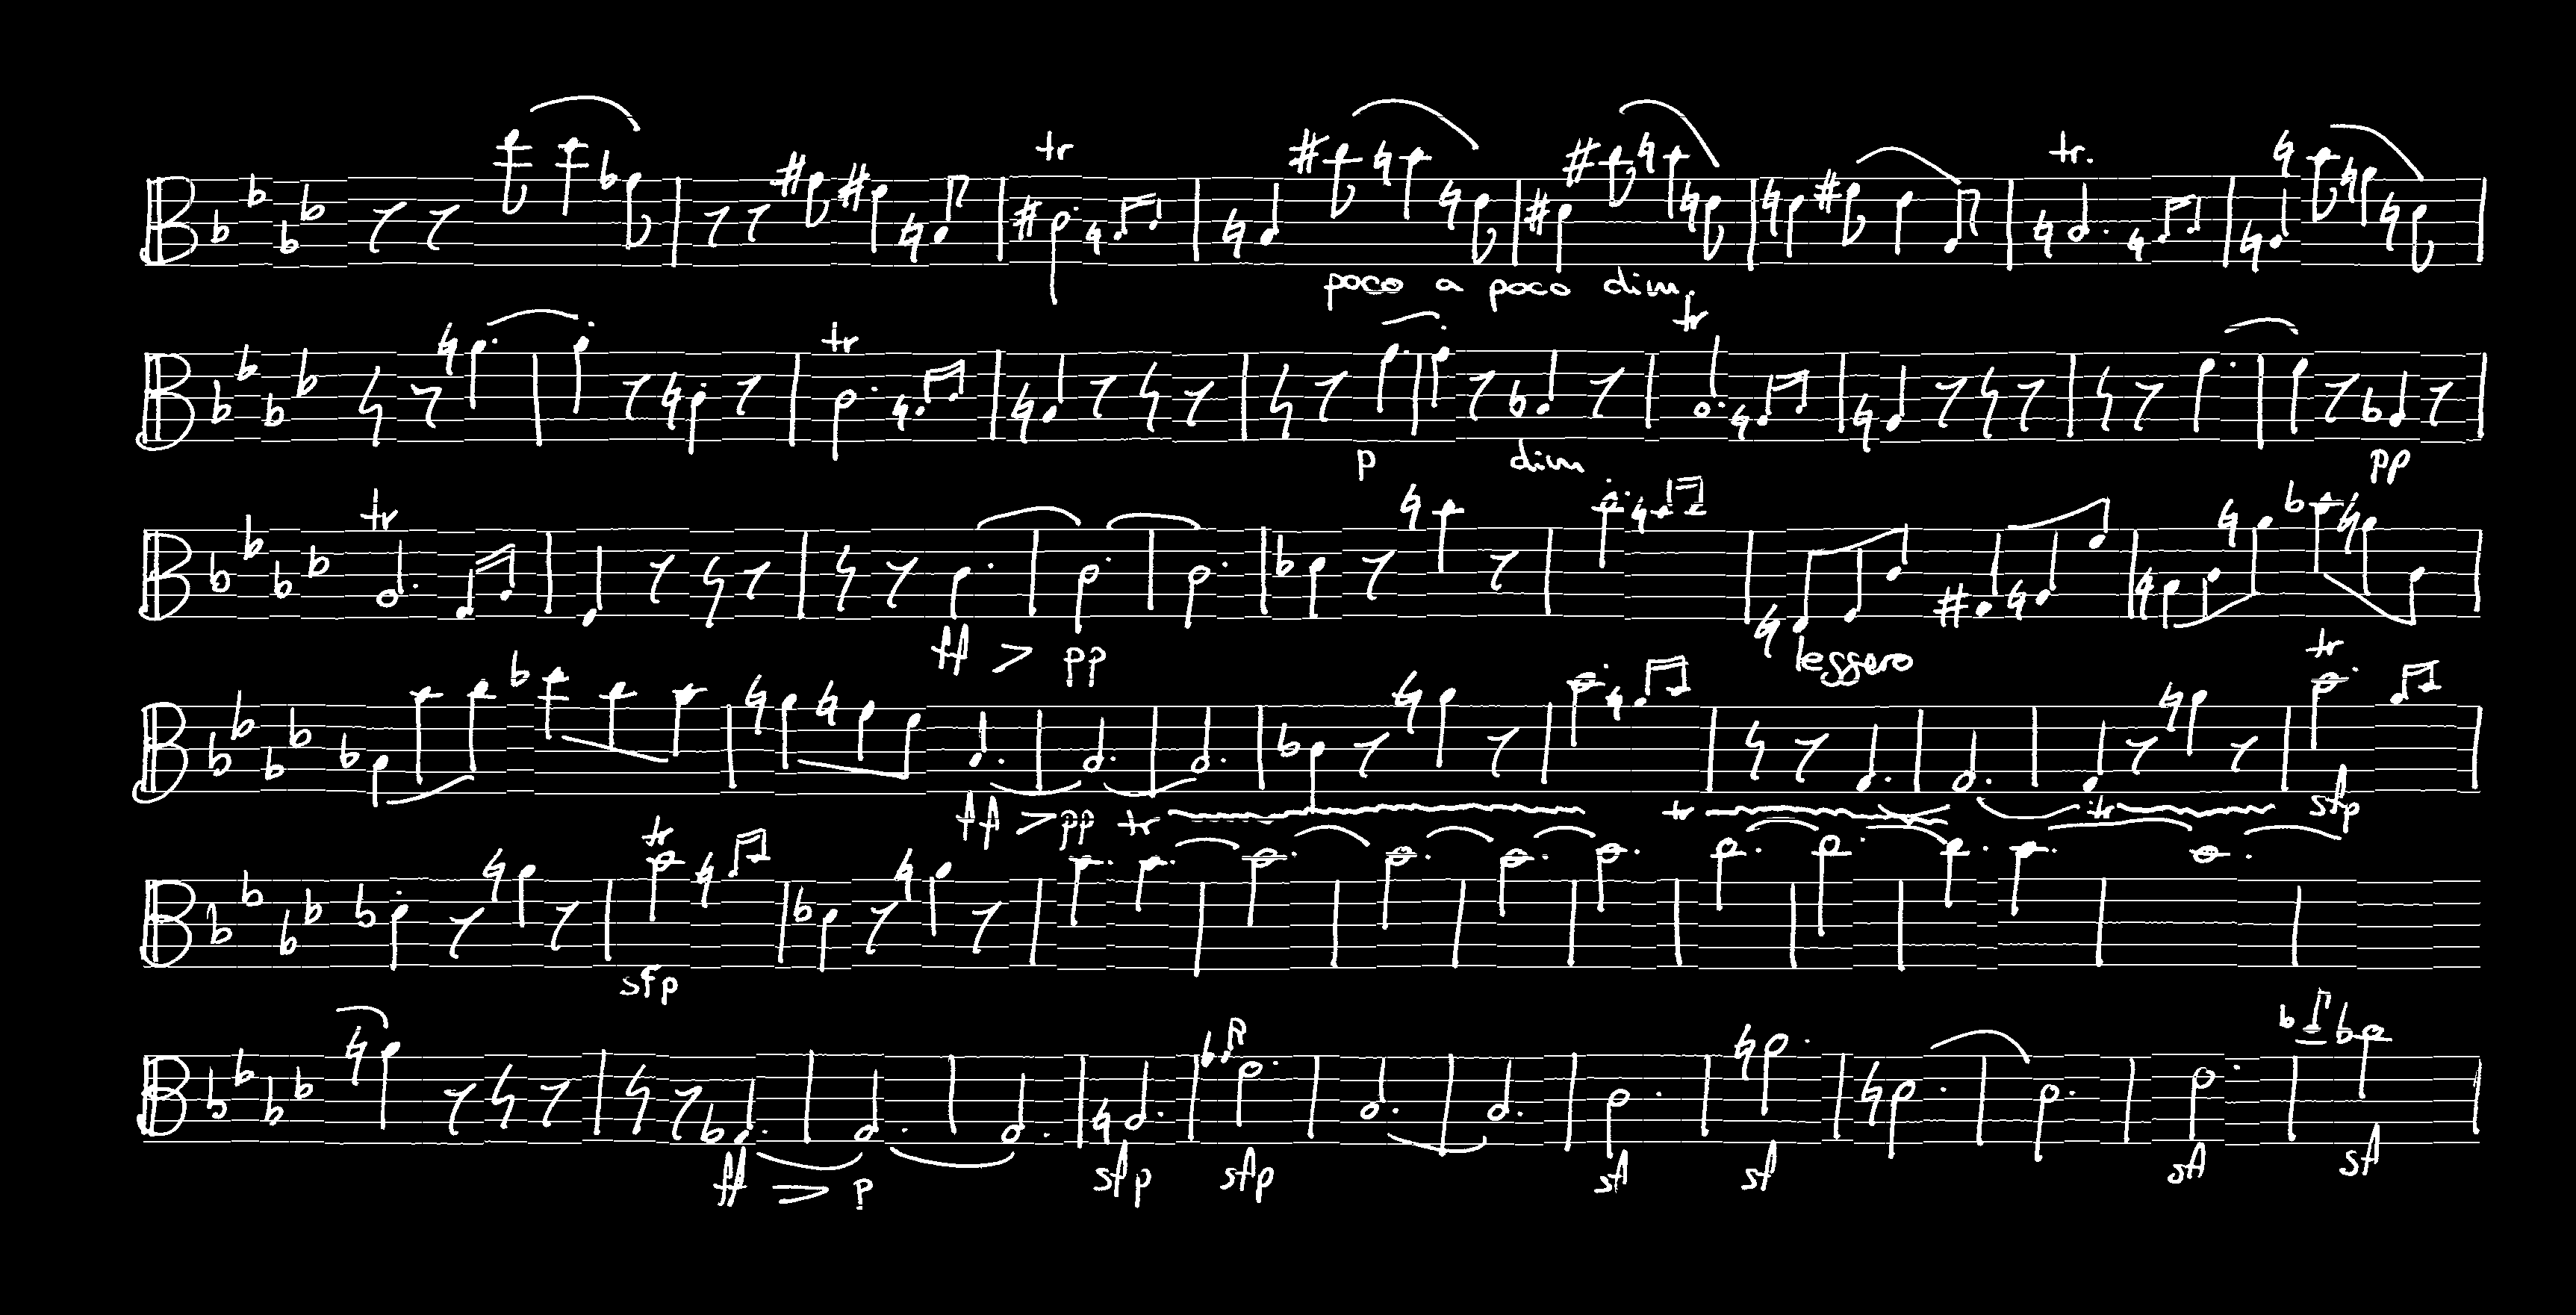 tr tr.
poco a poco dim.
tr tr
p dim pp
tr
ff pp leggero
tr
ff pp tr tr tr sfp
tr
sfp
ff p sfp sfp sf sf sf sf